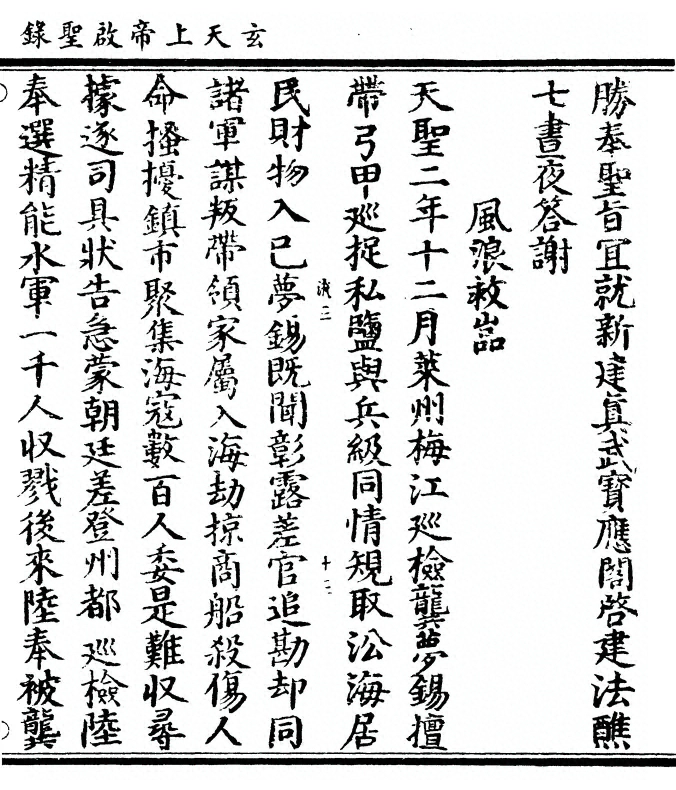 玄天上帝啟聖錄
勝奉聖旨冝就新建真武寳應閣啓建法醮
七晝夜答謝
風浪救嵓
天聖二年十二月萊州梅江廵檢龔夢錫擅
帶弓甲廵捉私鹽與兵級同情規取㳂海居
民財物入已夢錫既聞彰露差官追勘却同
諸軍謀叛帶領家屬入海劫掠商船殺傷人
命搔擾鎮市聚集海冦數百人委是難収尋
據逐司具狀告急蒙朝廷差登州都廵檢陸
奉選精能水軍一千人収戮後來陸奉被龔